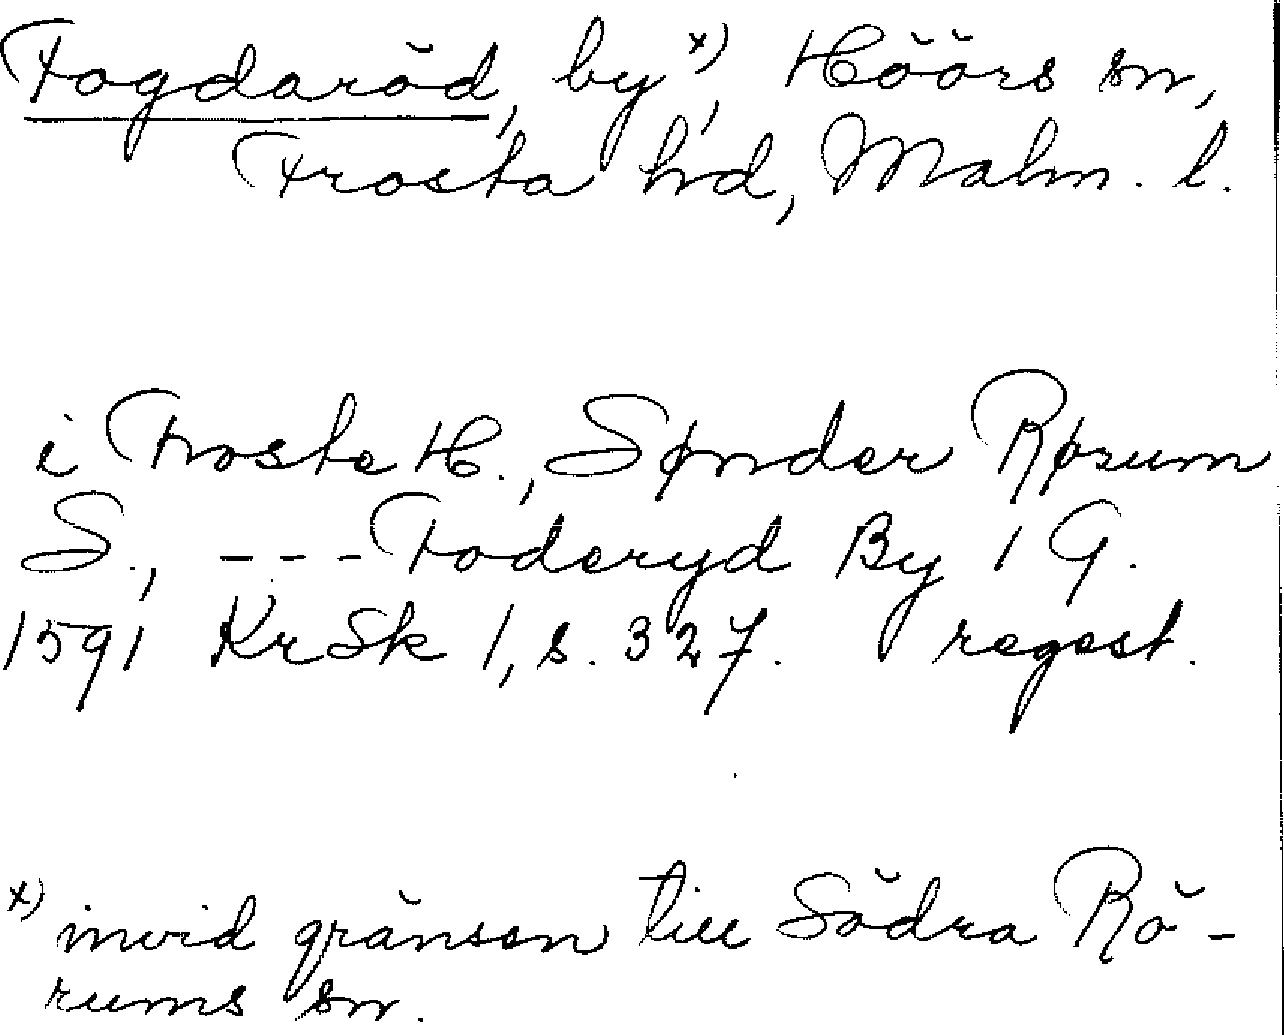 Fogdaröd, by x), Höörs sn,
Frosta hd, Malm. l.
i Froste H., Sønder Rørum
S., --- Foderyd By 1 G.
1591 KrSk 1, s. 327. regest.
x) invid gränsen till Södra Rö-
rums sn.